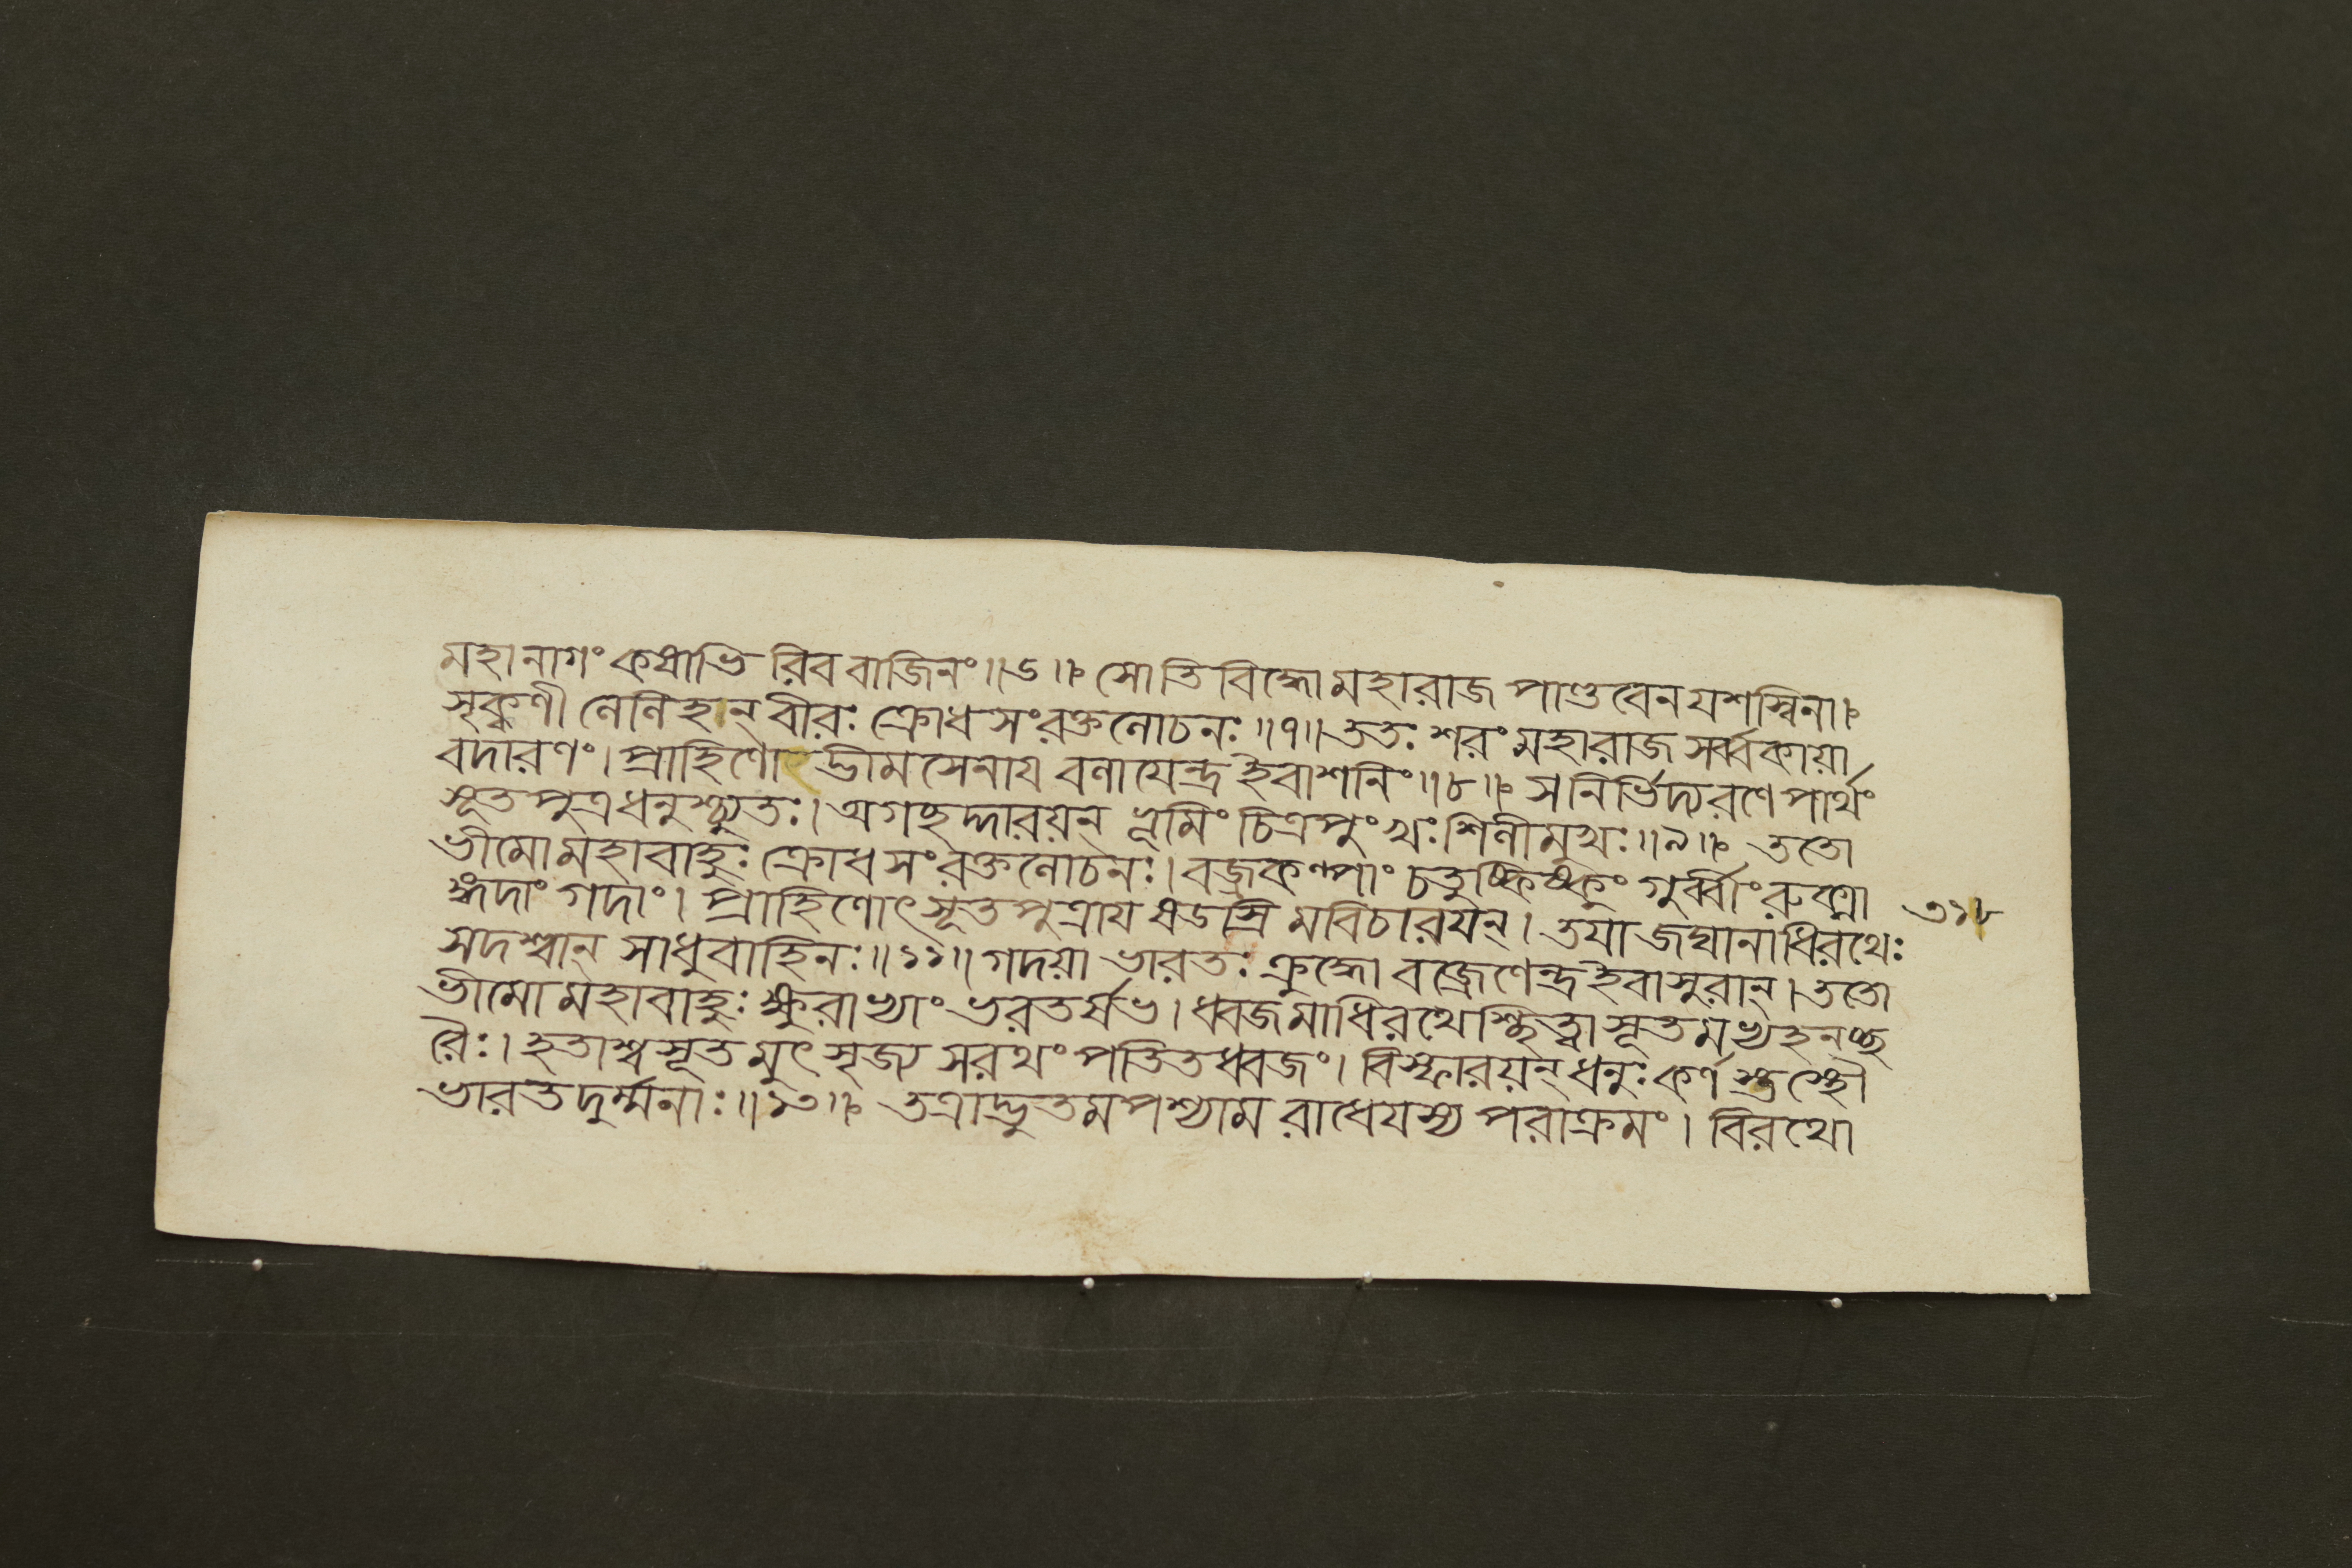 মহানাগং কষাভিরিব বাজিনং॥৬॥ সোতিবিদ্ধো মহারাজ পাণ্ডবেন যশস্বিনা।
সৃক্কণী লেলিহান্ বীরঃ ক্রোধসংরক্তলোচনঃ॥৭॥ ততঃ শরং মহারাজ সর্ব্বকায়া
বদারণং। প্রাহিণোদ্ভীমসেনায বলাযেন্দ্র ইবাশনিং॥৮॥ স নির্ভিদ্য রণে পার্থং
সূতপুত্রধনুশ্চ্যুতঃ। অগচ্ছদ্দারয়ন্ ভূমিং চিত্রপুংখঃ শিলীমুখঃ॥৯॥ ততো
ভীমো মহাবাহুঃ ক্রোধসংরক্তলোচনঃ। বজ্রকল্পাং চতুষ্কিষ্কুং গুর্ব্বীং রুক্মা
ঙ্গদাং গদাং। প্রাহিণোৎ সূতপুত্রায ষডস্রিমবিচারযন্। তযা জঘানাধিরথেঃ
সদশ্বান্ সাধুবাহিনঃ॥১১॥ গদয়া ভারতঃ ক্রুদ্ধো বজ্রেণেন্দ্র ইবাসুরান্। ততো
ভীমো মহাবাহুঃ ক্ষুরাভ্যাং ভরতর্ষভ। ধ্বজমাধিরথেশ্ছিত্ত্বা সূতমভ্যহনচ্ছ
রৈঃ। হতাশ্বসূতমুৎসৃজ্য সরথং পতিতধ্বজং। বিস্ফারয়ন্ ধনুঃ কর্ণস্তস্থৌ
ভারত দুর্ম্মনাঃ॥১৩॥ তত্রাদ্ভুতমপশ্যাম রাধেযস্য পরাক্রমং। বিরথো
৩১৮